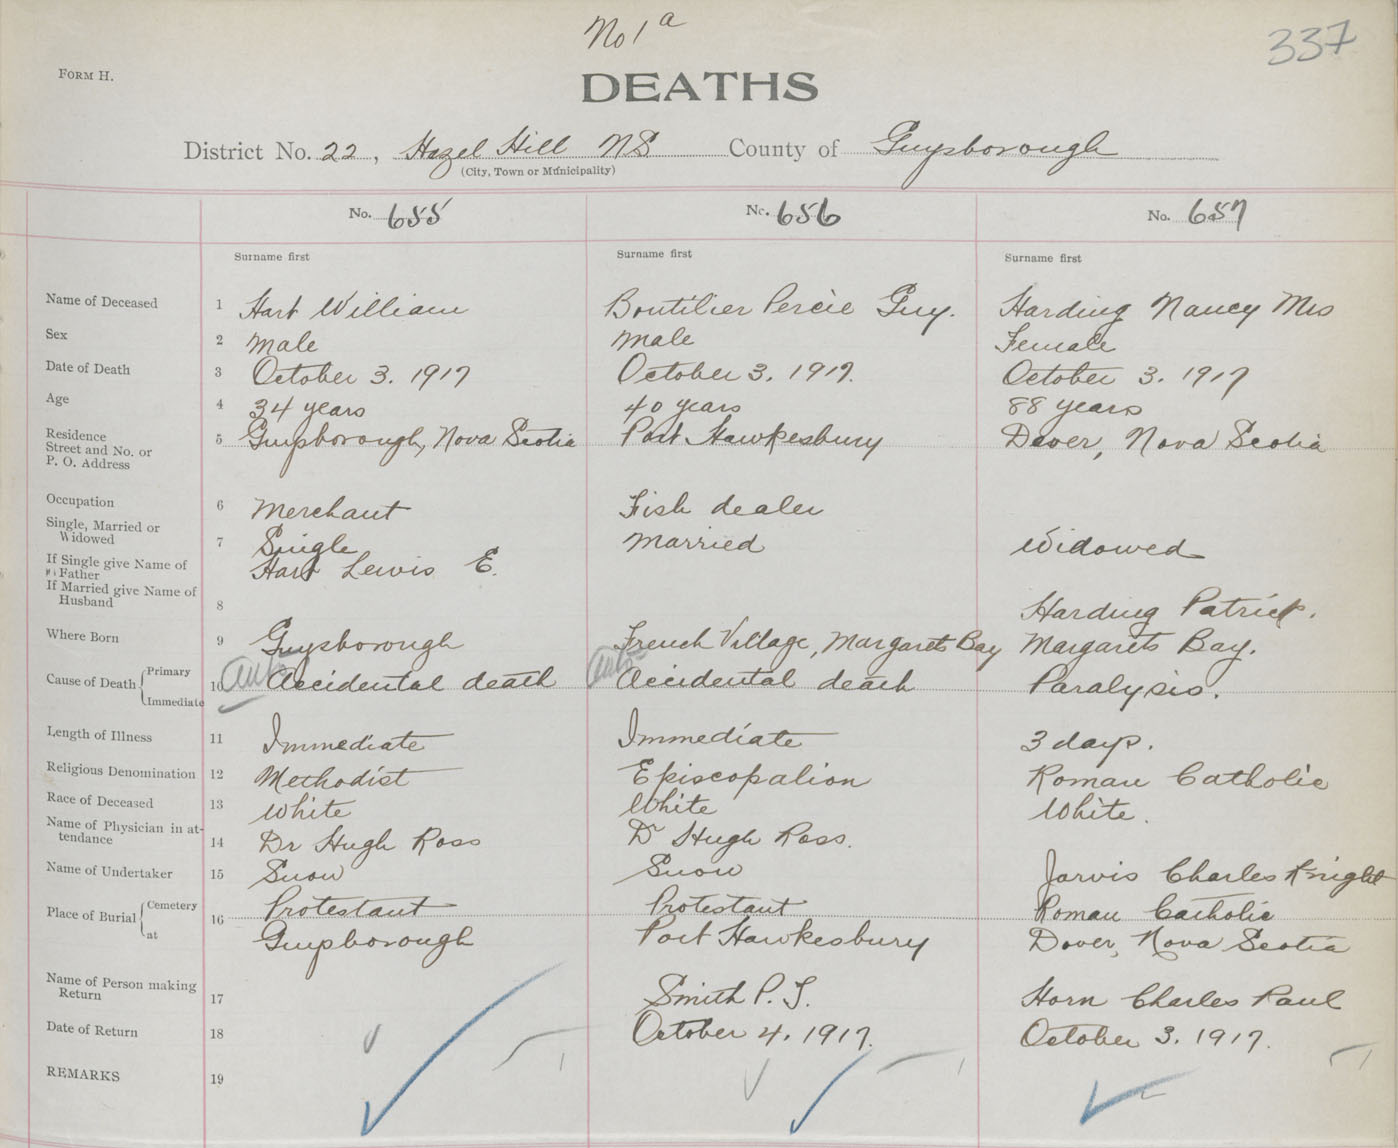 No 1 a
337
FORM H.
DEATHS
District No. 22, Hazel Hill NS County of Guysborough
(City, Town or Municipality)
No. 655 No. 656 No. 657
Surname first Surname first Surname first
Name of Deceased 1 Hart William Boutilier Percie Guy. Harding Nancy Mrs
Sex 2 Male Male Female
Date of Death 3 October 3. 1917 October 3. 1917. October 3. 1917
Age 4 34 years 40 years 88 years
Residence Street and No. or P. O. Address 5 Guysborough, Nova Scotia Port Hawkesbury Dover, Nova Scotia
Occupation 6 Merchant Fish dealer
Single, Married or Widowed 7 Single Married Widowed
If Single give Name of Father Hart Lewis E.
If Married give Name of Husband 8 Harding Patrick.
Where Born 9 Guysborough French Village, Margarets Bay Margarets Bay.
Cause of Death Primary Immediate 10 Auto Accidental death Auto Accidental death Paralysis.
Length of Illness 11 Immediate Immediate 3 days.
Religious Denomination 12 Methodist Episcopalion Roman Catholic
Race of Deceased 13 White White White.
Name of Physician in attendance 14 Dr Hugh Ross Dr Hugh Ross.
Name of Undertaker 15 Snow Snow Jarvis Charles Knight
Place of Burial Cemetery 16 Protestant Protestant Roman Catholic
at Guysborough Port Hawkesbury Dover, Nova Scotia
Name of Person making Return 17 Smith P. S. Horn Charles Paul
Date of Return 18 October 4. 1917. October 3. 1917.
REMARKS 19